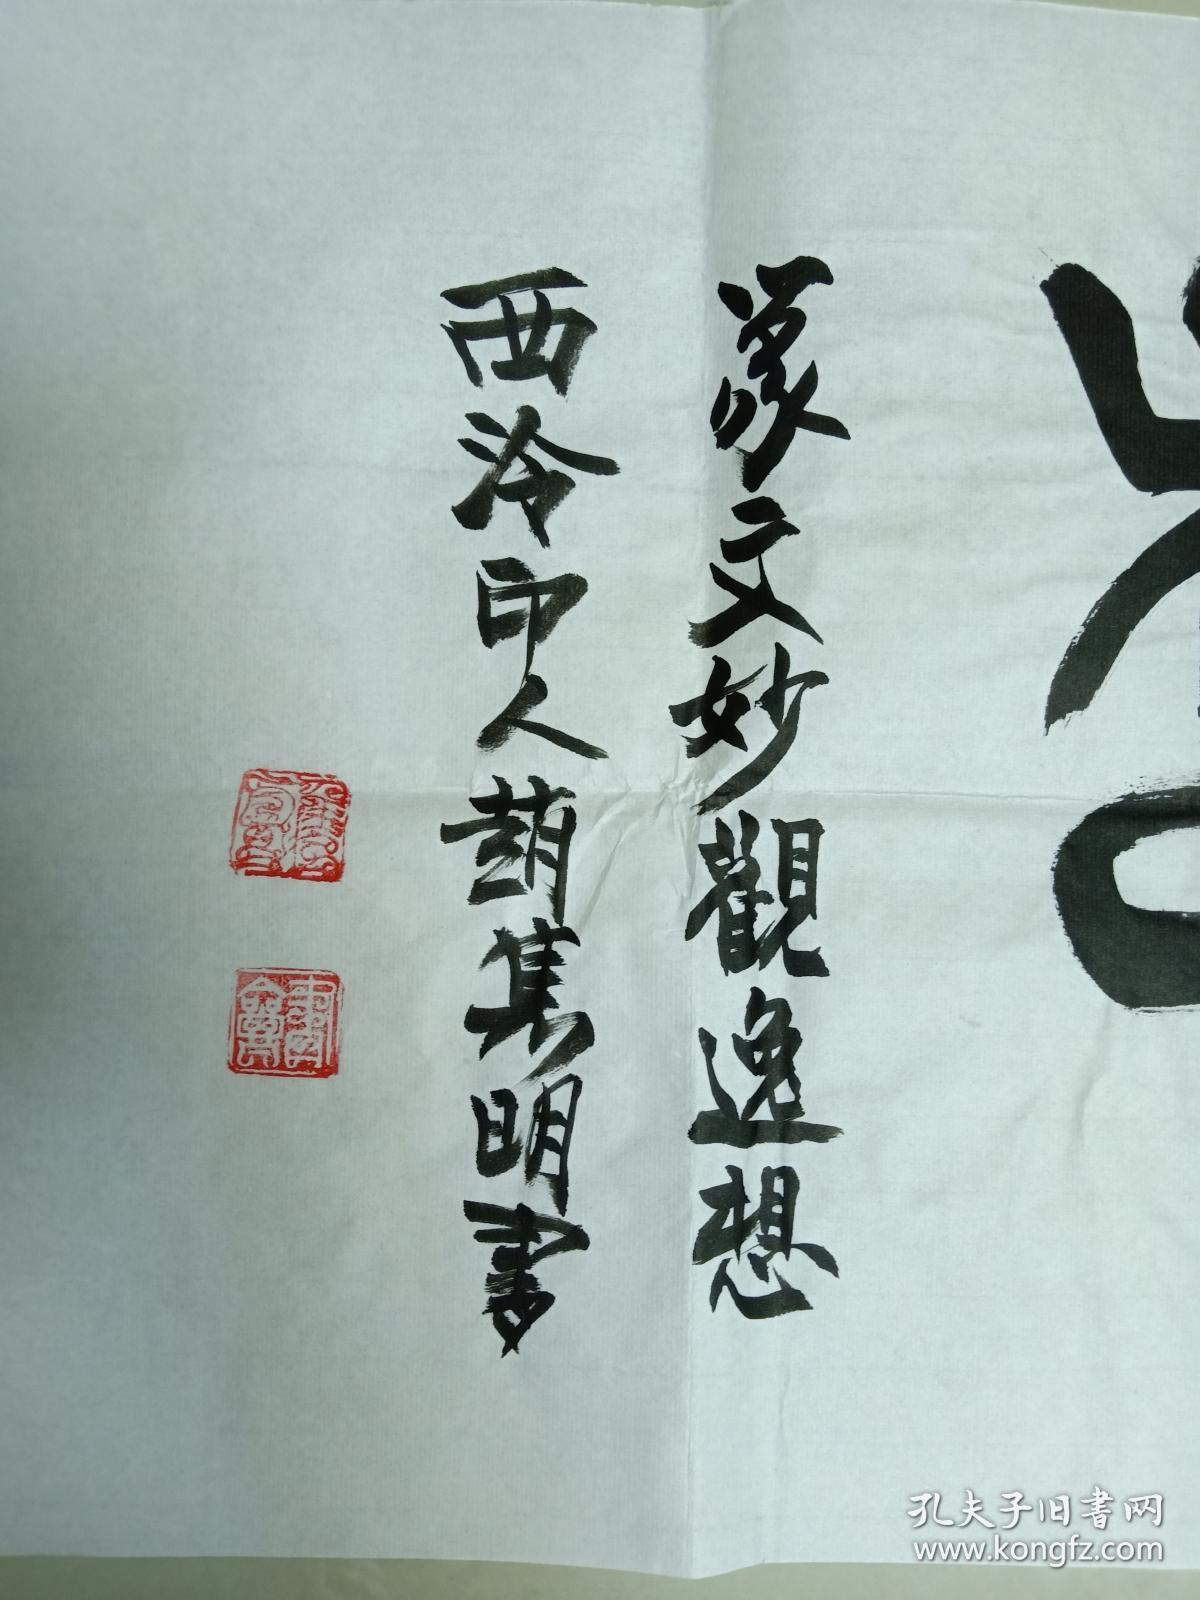 篆文妙觀逸想
西泠印人趙集明書
孔夫子旧书网
www.kongfz.com